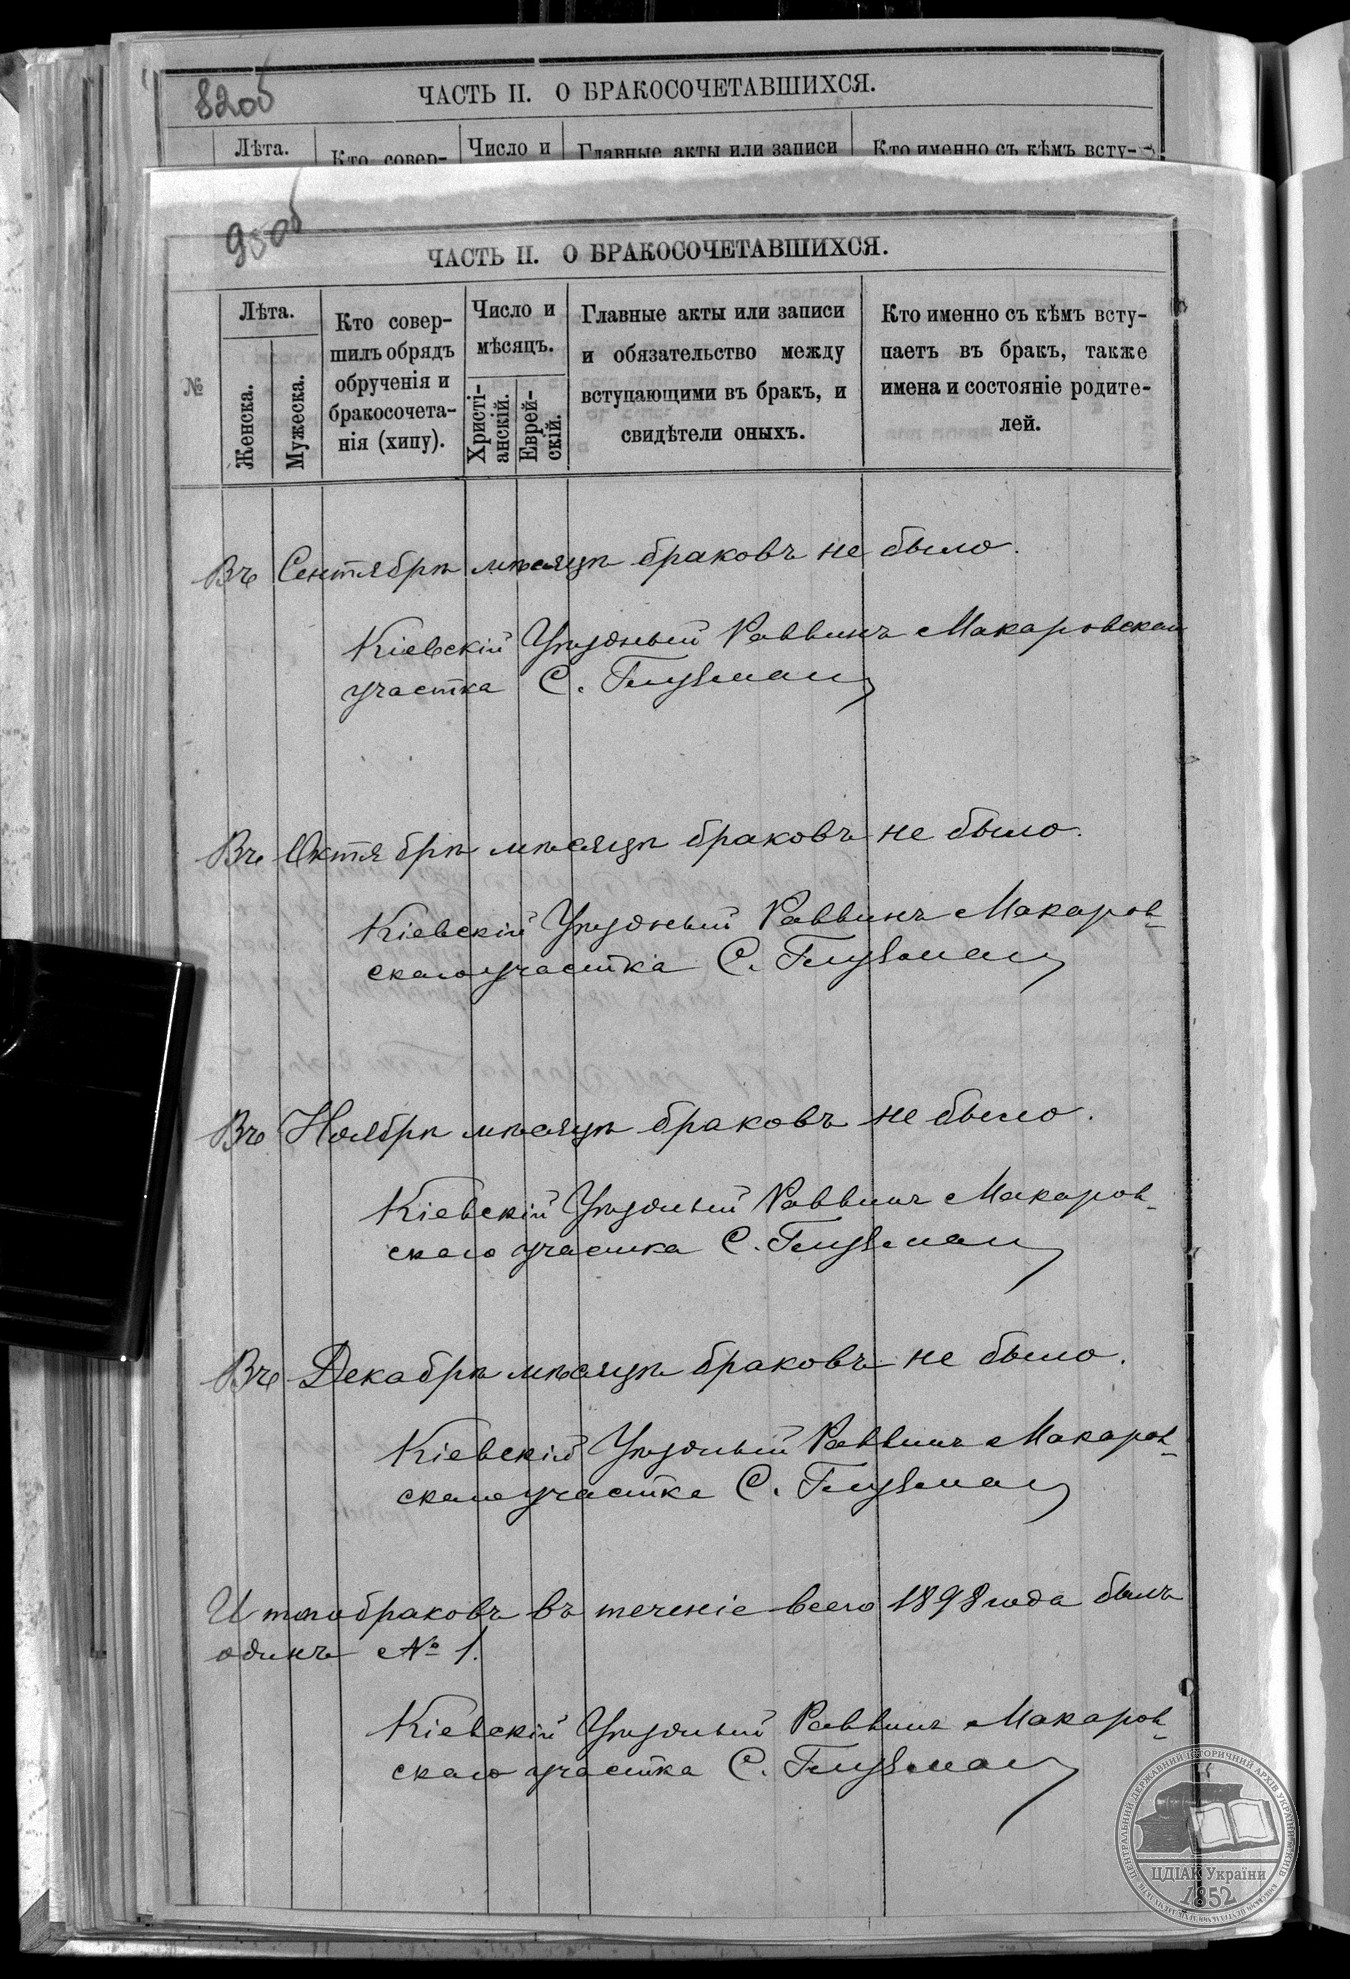 82об
ЧАСТЬ II. О БРАКОСОЧЕТАВШИХСЯ.
Лѣта.
Кто совер-
Число и
Главные акты или записи
Кто именно съ кѣмъ всту-
95об
ЧАСТЬ II. О БРАКОСОЧЕТАВШИХСЯ.
№
Лѣта.
Женска.
Мужеска.
Кто совер-
шилъ обрядъ
обрученія и
бракосочета-
нія (хипу).
Число и
мѣсяцъ.
Христі-
анскій.
Еврей-
скій.
Главные акты или записи
и обязательство между
вступающими въ бракъ, и
свидѣтели оныхъ.
Кто именно съ кѣмъ всту-
паетъ въ бракъ, также
имена и состояніе родите-
лей.
Въ Сентябрѣ мѣсяцѣ браковъ не было.
Кіевскій Уѣздный Раввинъ Макаровскаго
участка С. Глузманъ
Въ Октябрѣ мѣсяцѣ браковъ не было.
Кіевскій Уѣздный Раввинъ Макаров-
скаго участка С. Глузманъ
Въ Ноябрѣ мѣсяцѣ браковъ не было.
Кіевскій Уѣздный Раввинъ Макаров-
скаго участка С. Глузманъ
Въ Декабрѣ мѣсяцѣ браковъ не было.
Кіевскій Уѣздный Раввинъ Макаров-
скаго участка С. Глузманъ
Итого браковъ въ теченіе всего 1898 года былъ
одинъ № 1.
Кіевскій Уѣздный Раввинъ Макаров-
скаго участка С. Глузманъ
ЦЕНТРАЛЬНИЙ ДЕРЖАВНИЙ ІСТОРИЧНИЙ АРХІВ УКРАЇНИ, М. КИЇВ
ЦДІАК України
1852